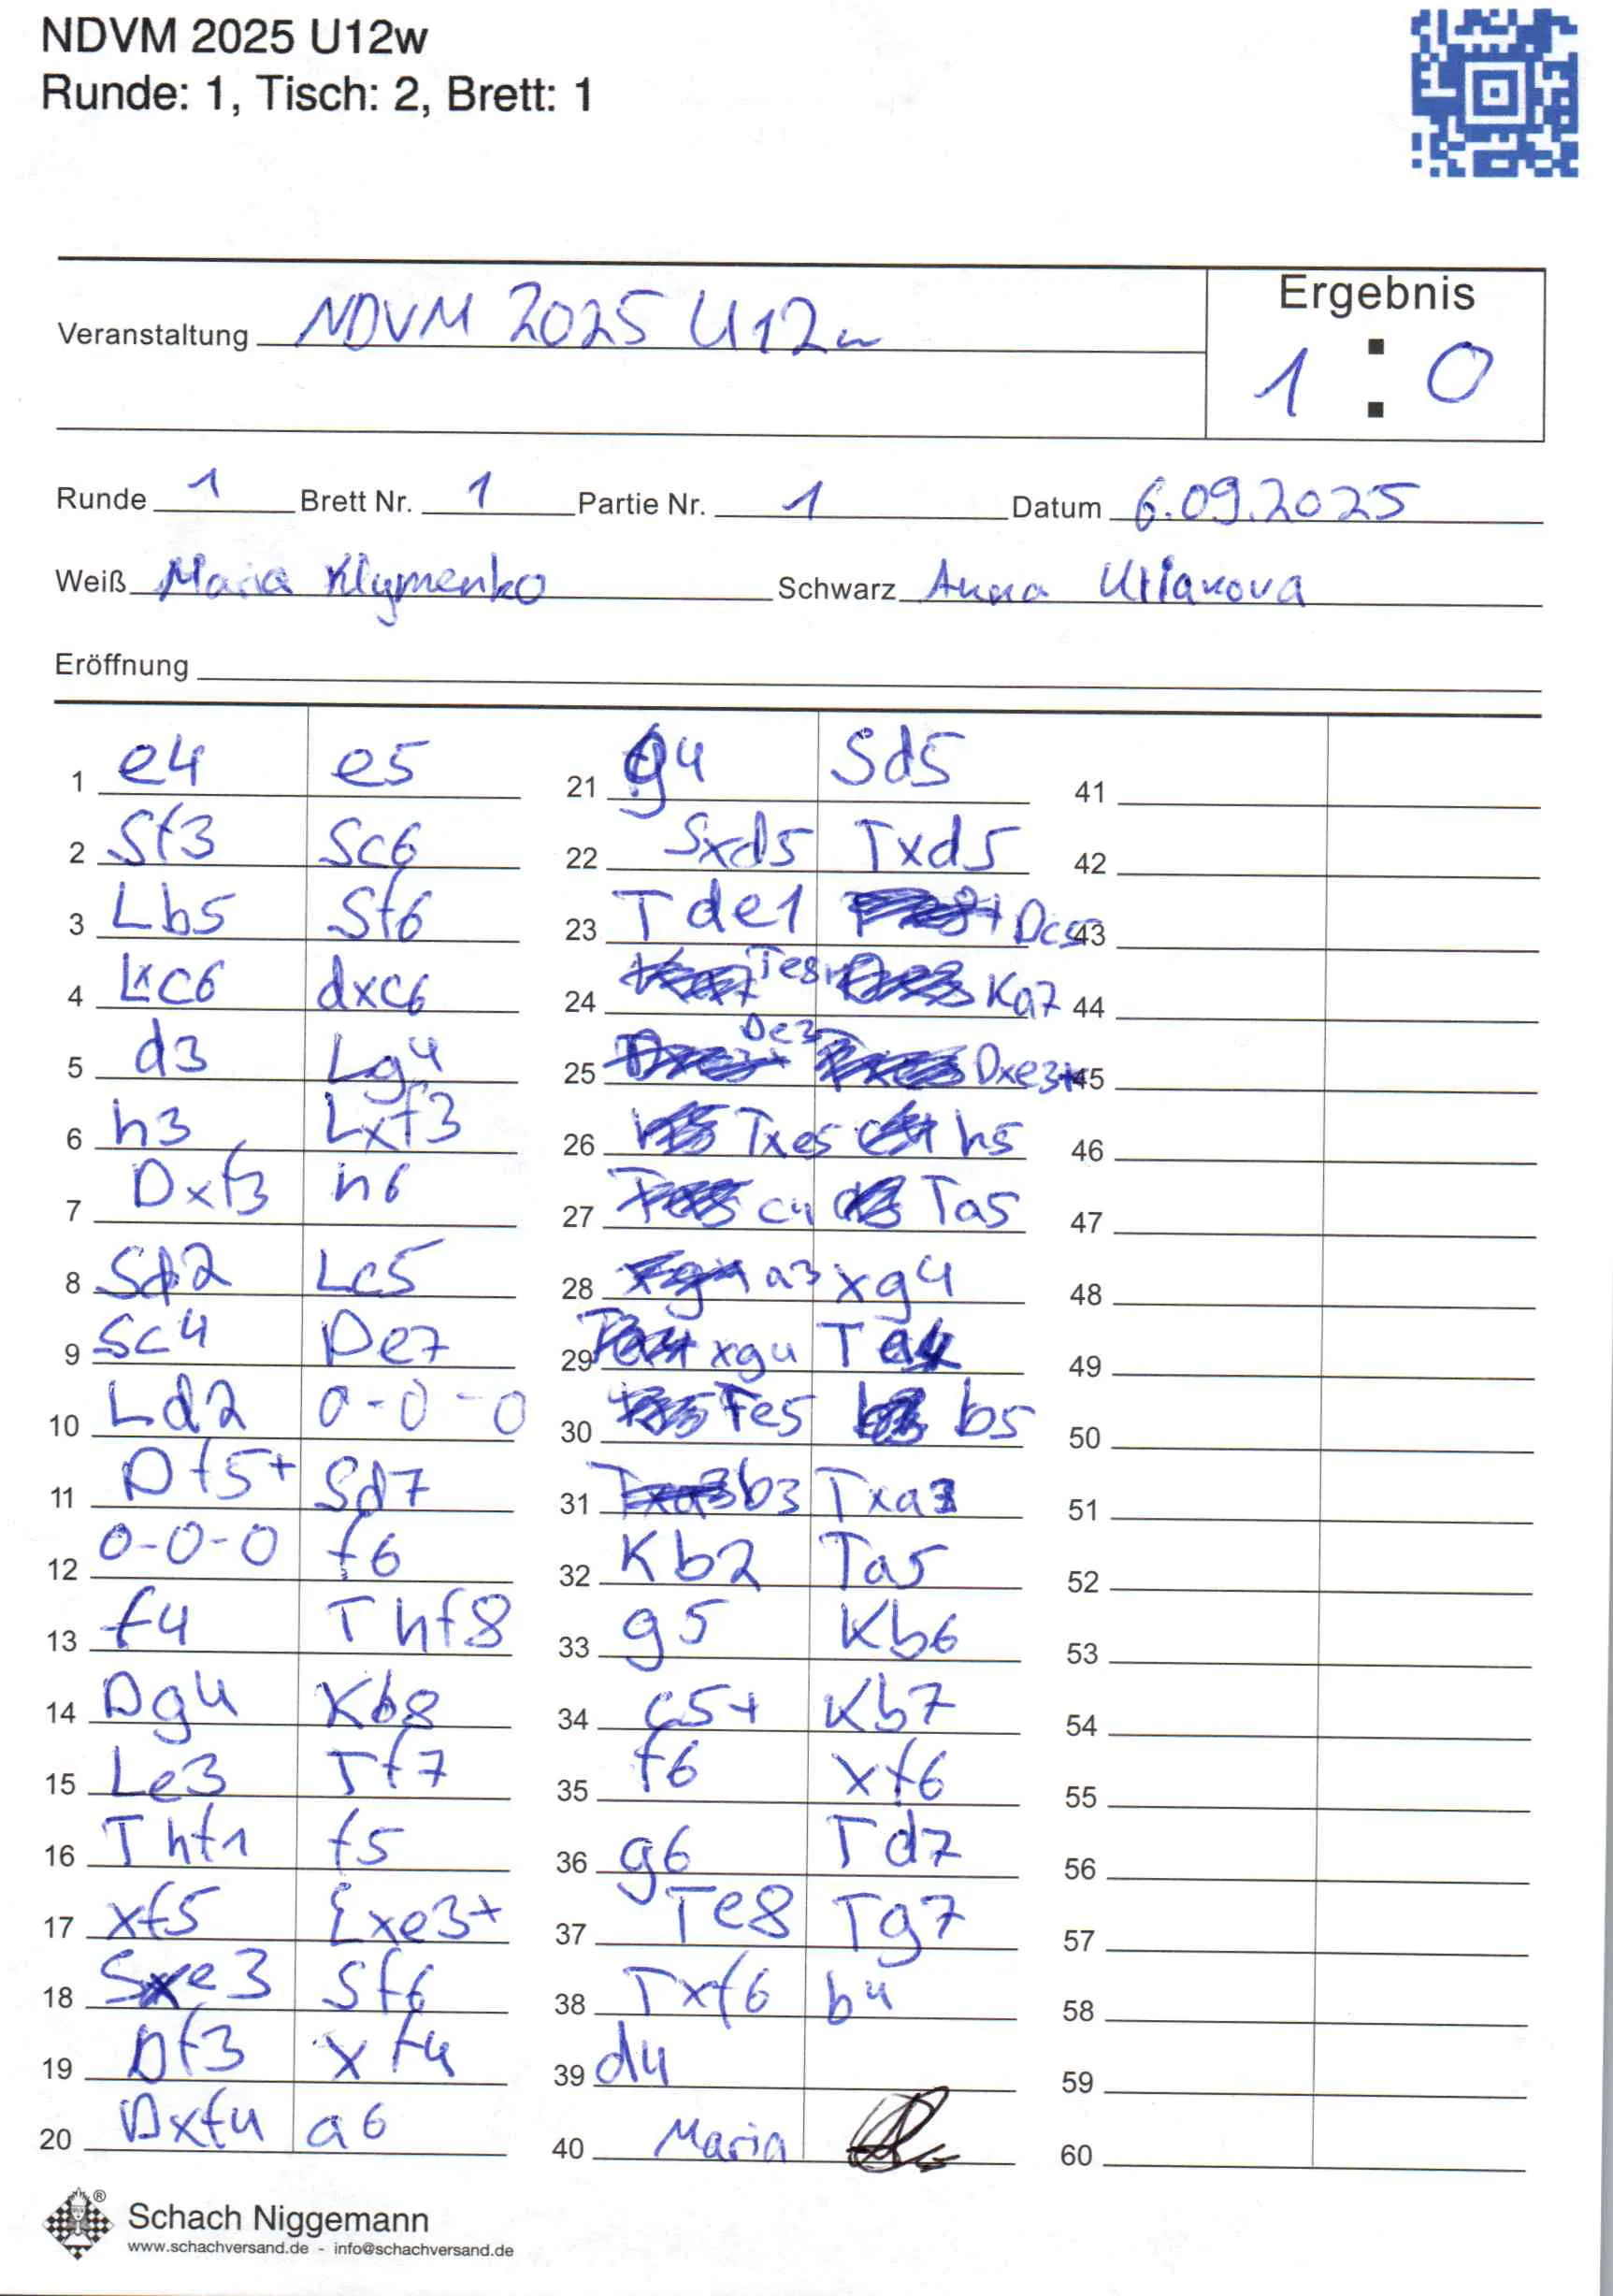 NDVM 2025 U12w
Runde: 1, Tisch: 2, Brett: 1
Ergebnis
Veranstaltung NDVM 2025 U12w
1 : 0
Runde 1 Brett Nr. 1 Partie Nr. 1 Datum 6.09.2025
Weiß Maria Klymenko Schwarz Anna
Eröffnung
1 e4 e5
2 Sf3 Sc6
3 Lb5 Sf6
4 Lxc6 dxc6
5 d3 Lg4
6 h3 Lxf3
7 Dxf3 h6
8 Sd2 Lc5
9 Sc4 De7
10 Ld2 0-0-0
11 Df5+ Sd7
12 0-0-0 f6
13 f4 Thf8
14 Dg4 Kb8
15 Le3 Tf7
16 Thf1 f5
17 xf5 Lxe3+
18 Sxe3 Sf6
19 Df3 xf4
20 Dxf4 a6
21 g4 Sd5
22 Sxd5 Txd5
23 Tde1 Dc5
24 Te8+ Ka7
25 De3 Dxe3+
26 Txe3 h5
27 c4 Ta5
28 a3 xg4
29 xg4 Ta4
30 Te5 b5
31 b3 Txa3
32 Kb2 Ta5
33 g5 Kb6
34 c5+ Kb7
35 f6 xf6
36 g6 Td7
37 Te8 Tg7
38 Txf6 b4
39 d4
40 Maria
41
42
43
44
45
46
47
48
49
50
51
52
53
54
55
56
57
58
59
60
®
Schach Niggemann
www.schachversand.de - info@schachversand.de